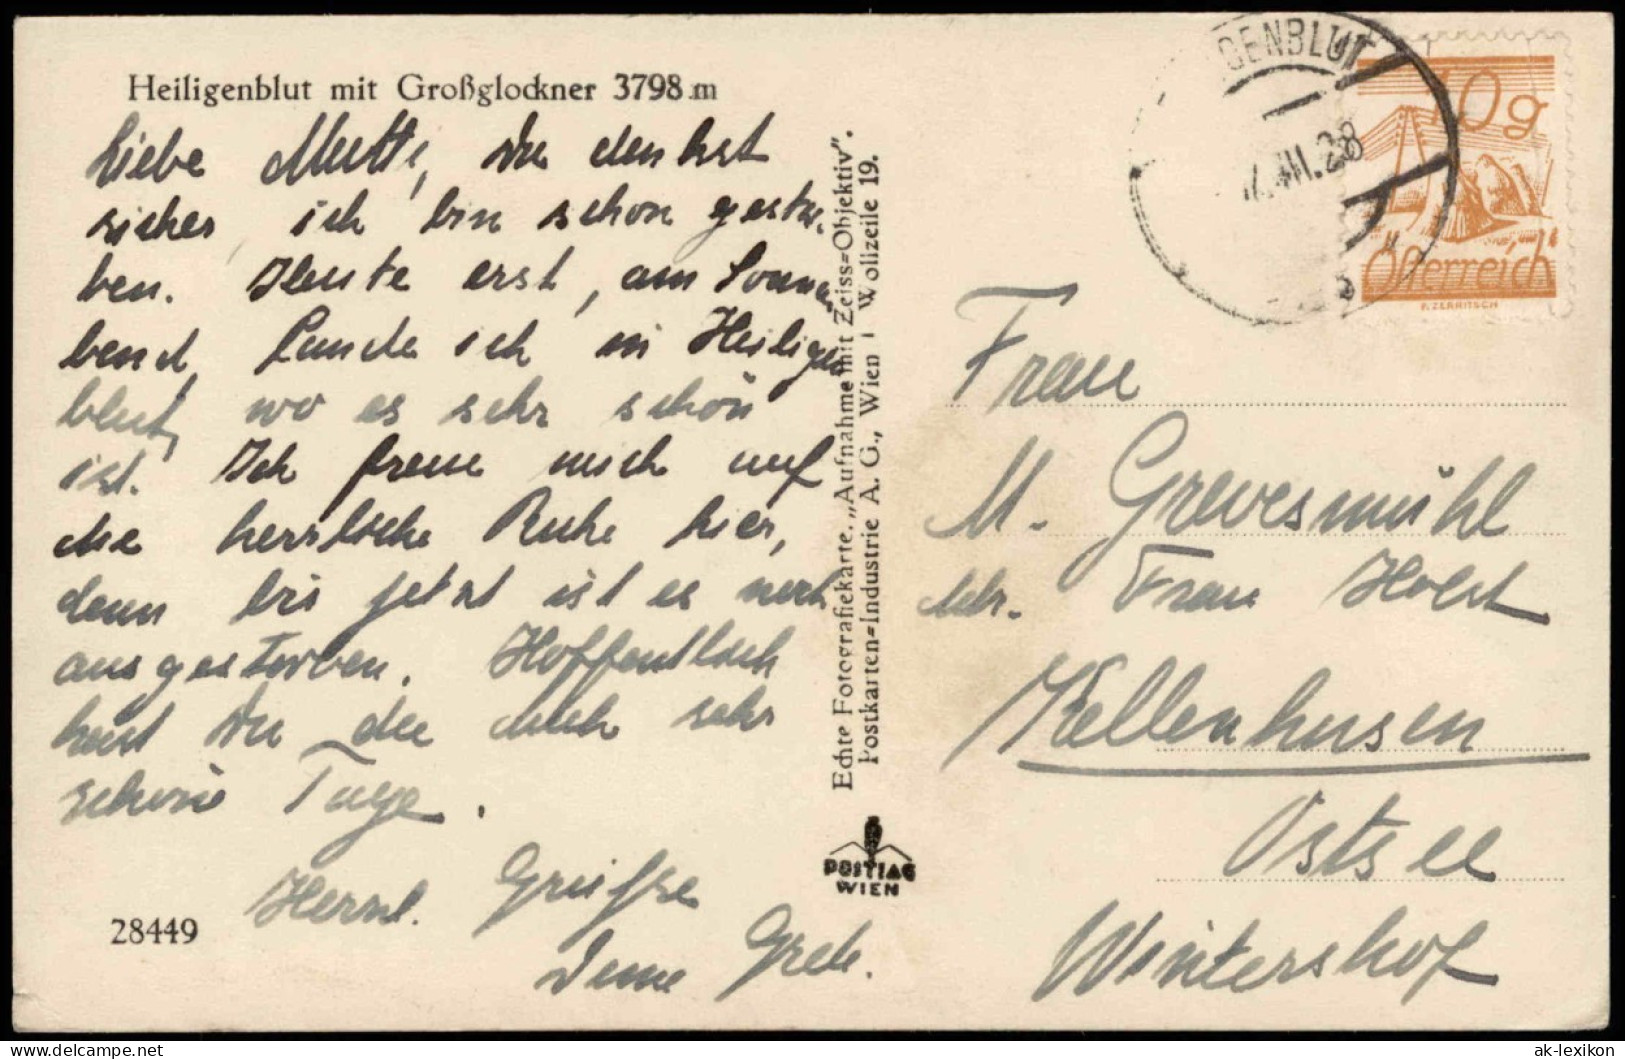 Heiligenblut mit Großglockner 3798 m
Liebe Mutti, Du denkst
sicher, ich bin schon gestor-
ben. Heute erst, am Sonna-
bend, lande ich in Heiligen
blut, wo es sehr schön
ist. Ich freue mich auf
die herrliche Ruhe hier,
denn bis jetzt ist es noch
ausgestorben. Hoffentlich
hast Du die auch sehr
schöne Tage.
Herzl. Grüsse
Deine Grete.
28449
Echte Fotografiekarte. „Aufnahme mit Zeiss=Objektiv".
Postkarten=Industrie A. G., Wien I Wollzeile 19.
POSTIAG
WIEN
GENBLUT
VIII.28
10g
Österreich
P. ZERRITSCH
Frau
M. Grevesmühl
Adr. Frau Holst
Kellenhusen
Ostsee
Wintershof
delcampe.net
ak-lexikon